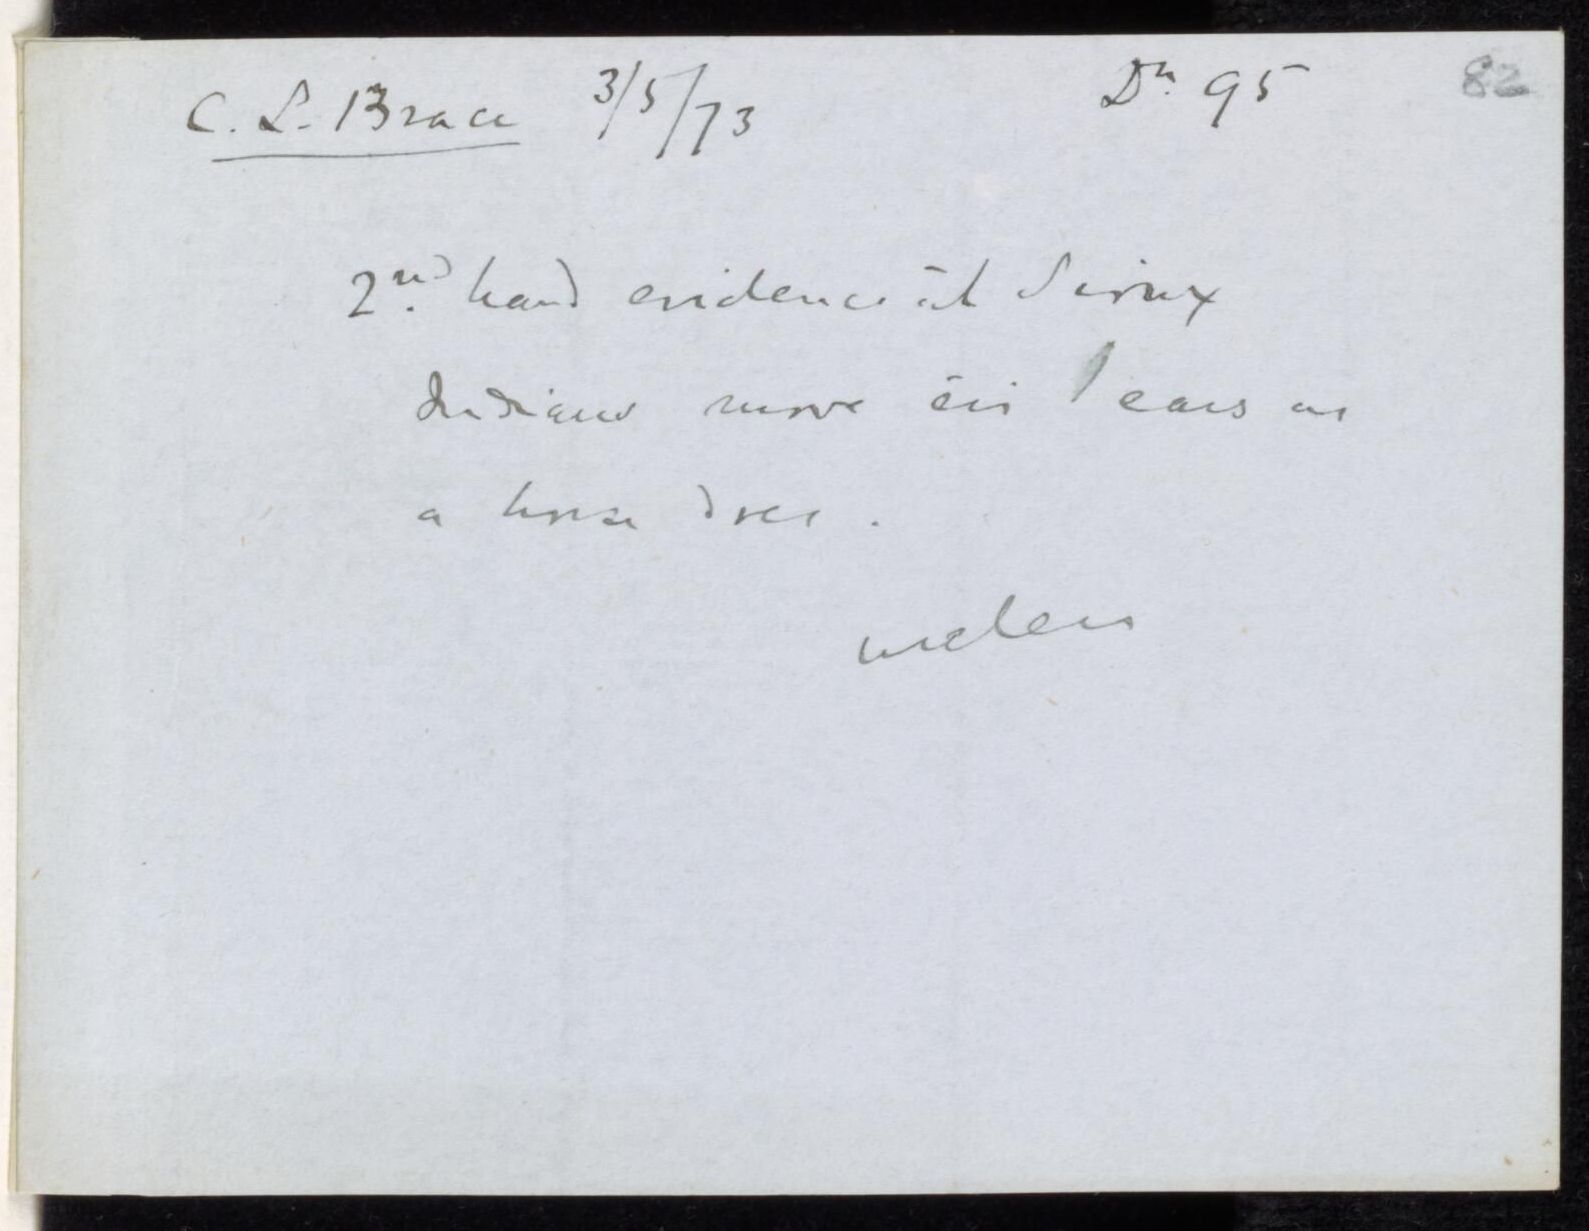 C. L. Brace 3/5/73 Dn. 95 82
2nd. hand evidence āt Sioux
Indians move ēir ears as
a horse does.
useless